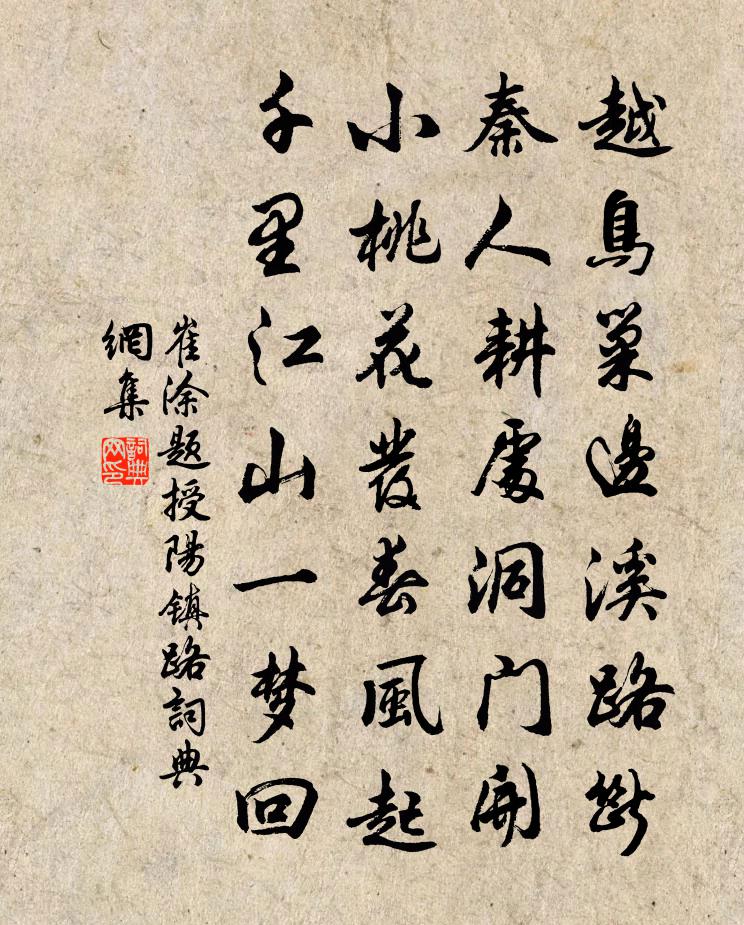 越鳥巢邊溪路斷
秦人耕處洞門開
小桃花發春風起
千里江山一梦回
崔涂題授陽鎮路詞典
網集
詞典
网印